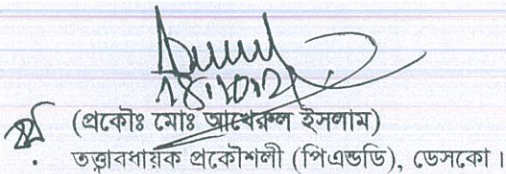 18.10.21
(প্রকৌঃ মোঃ আখেরুল ইসলাম)
তত্ত্বাবধায়ক প্রকৌশলী (পিএন্ডডি), ডেসকো।